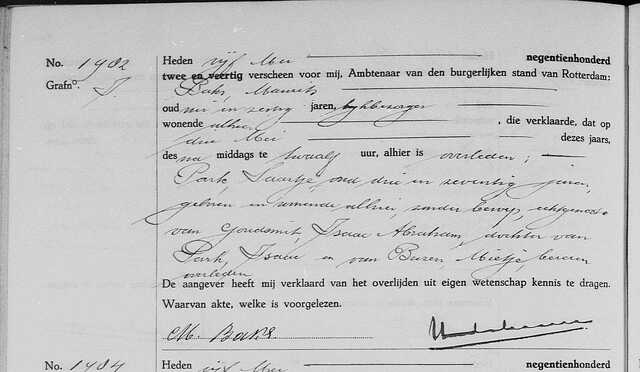 No. 1982
Grafno. I.
Heden vijf Mei negentienhonderd
twee en veertig verscheen voor mij, Ambtenaar van den burgerlijken stand van Rotterdam:
Baks, Maurits
oud en zestig jaren,
wonende alhier, die verklaarde, dat op
drie Mei dezes jaars,
des na middags te twaalf uur, alhier is overleden;
Park, Saartje, oud drie en zeventig jaren,
geboren en wonende alhier, zonder beroep, echtgenoote
van Goudsmit, Isaac Abraham, dochter van
Park, Isaac en van Buren, Mietje, beiden
overleden
De aangever heeft mij verklaard van het overlijden uit eigen wetenschap kennis te dragen.
Waarvan akte, welke is voorgelezen.
M. Baks
No. 1984 Heden vijf Mei negentienhonderd